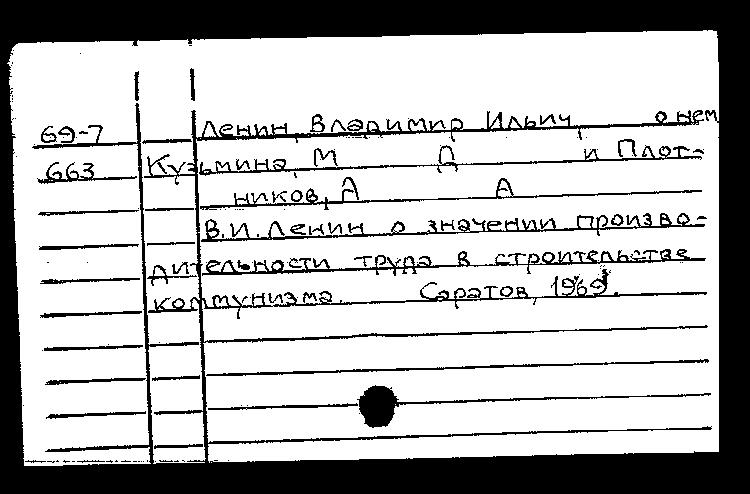 69-7 Ленин, Владимир Ильич, о нем
663 Кузьмина, М Д и Плот-
ников, А А
В.И. Ленин о значении произво-
дительности труда в строительстве
коммунизма. Саратов, 1969.